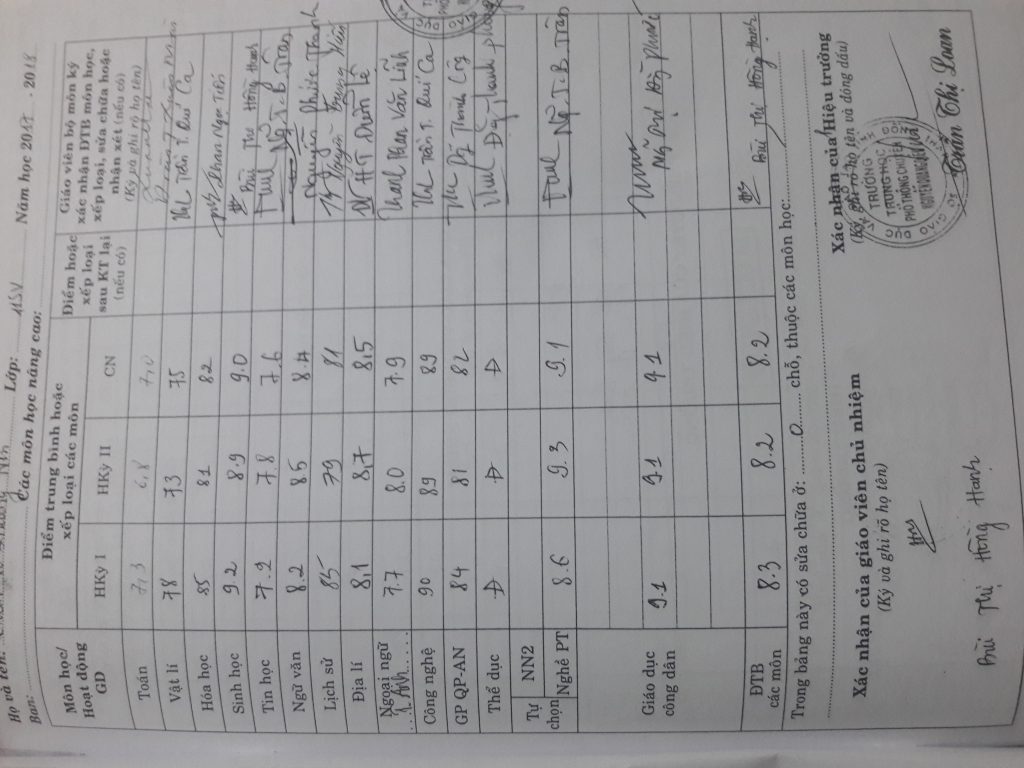 Họ và tên: Lớp: 11SV Năm học 2017 - 2018
Ban: Các môn học nâng cao:
Môn học/ Hoạt động GD | Điểm trung bình hoặc xếp loại các môn | Điểm hoặc xếp loại sau KT lại (nếu có) | Giáo viên bộ môn ký xác nhận ĐTB môn học, xếp loại, sửa chữa hoặc nhận xét (nếu có) (Ký và ghi rõ họ tên)
HKỳ I | HKỳ II | CN
Toán 7,3 6,8 7,0
Vật lí 78 73 75 Trần T. Quí Ca
Hóa học 85 81 82 Phan Ngọc Tiến
Sinh học 9.2 8.9 9.0 Bùi Thị Hồng Hạnh
Tin học 7.9 7.8 7.6 Ng.T.B.Trân
Ngữ văn 8.2 8.5 8.4 Nguyễn Phước Thạnh
Lịch sử 85 79 81
Địa lí 8,1 8,7 8,5
Ngoại ngữ Anh 7.7 8.0 7.9 Phan Văn Lĩnh
Công nghệ 90 89 89 Trần T. Quí Ca
GP QP-AN 84 81 82
Thể dục Đ Đ Đ
Tự chọn NN2
Nghề PT 8.6 9.3 9.1 Ng.T.B.Trân
Giáo dục công dân 9.1 9.1 9.1
ĐTB các môn 8.3 8.2 8.2 Bùi Thị Hồng Hạnh
Trong bảng này có sửa chữa ở: 0 chỗ, thuộc các môn học:
Xác nhận của giáo viên chủ nhiệm
(Ký và ghi rõ họ tên)
Bùi Thị Hồng Hạnh
Xác nhận của Hiệu trưởng
(Ký, ghi rõ họ tên và đóng dấu)
TRƯỜNG
TRUNG HỌC
PHỔ THÔNG CHUYÊN
Trần Thị Loan